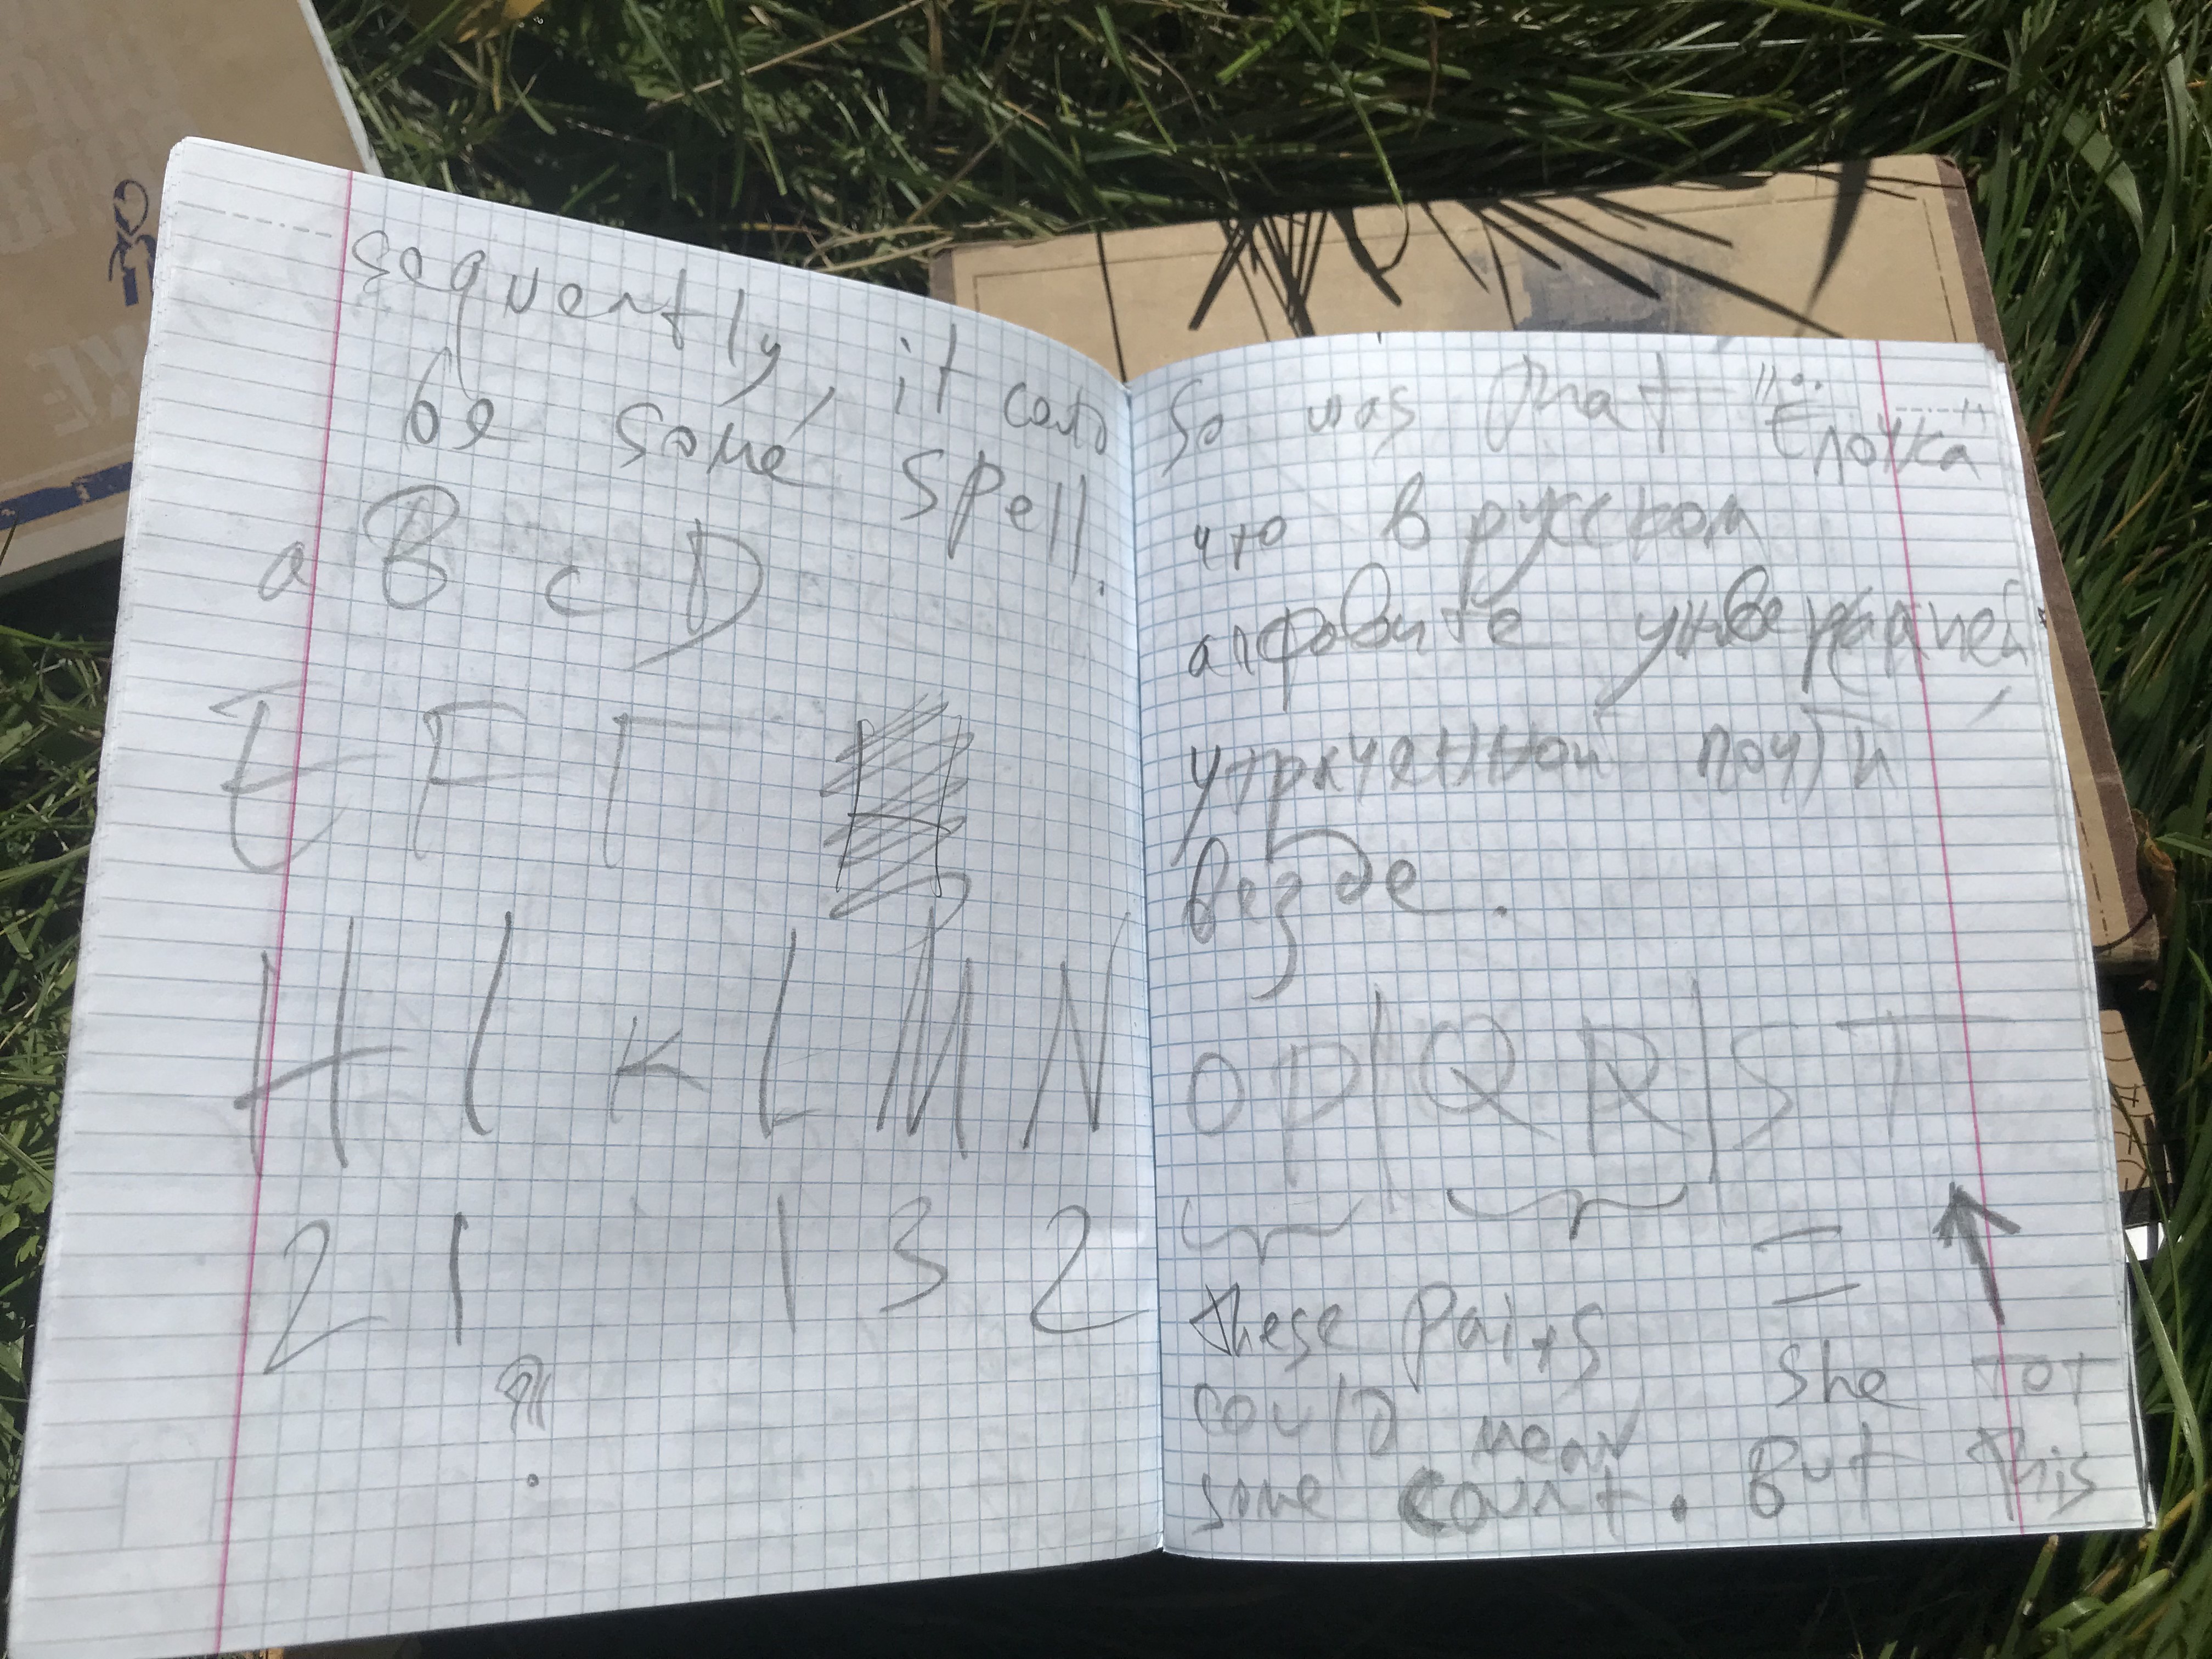 sequently, it could
be some spell.
a B c D
E F Г
H I K L M N
2 1 1 3 2
?
So was that "Ёлочка"
что в русском
алфавите
почти
везде.
O P | Q R | S T
these pairs
could mean
some count.
She
But this
KE